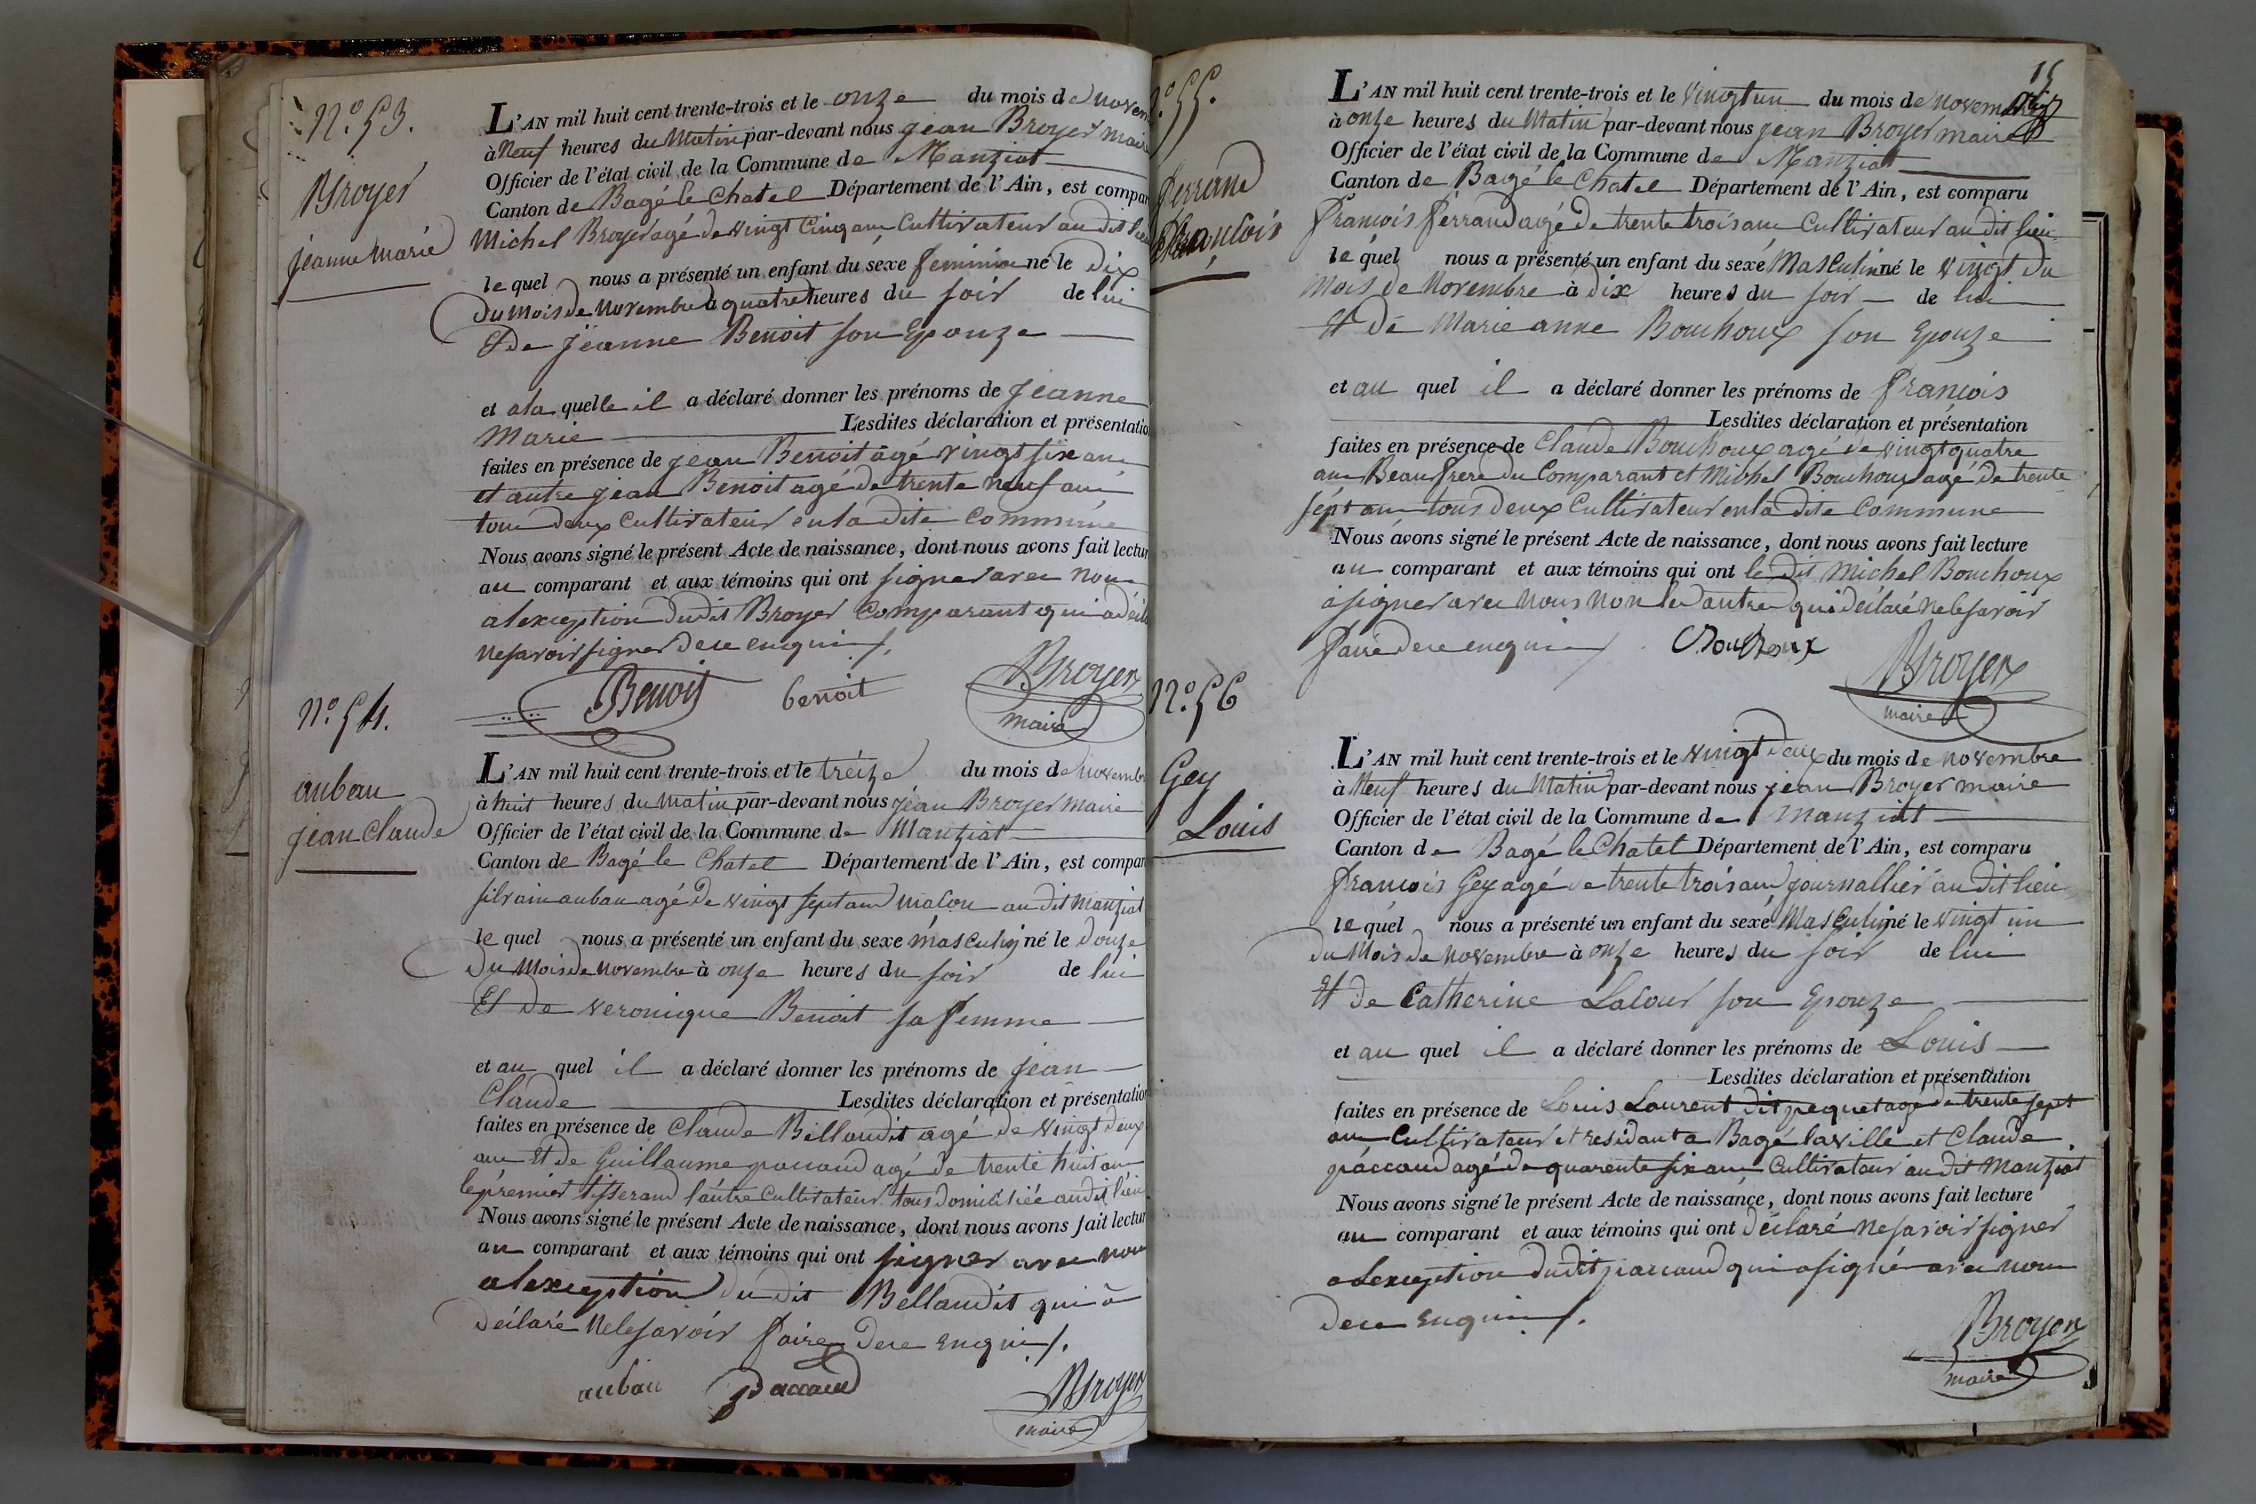 N.º 53.
Broyer
jeanne marie
L'AN mil huit cent trente-trois et le onze du mois de novem
à Neuf heures du Matin par-devant nous jean Broyer maire
Officier de l'état civil de la Commune de Manziat
Canton de Bagé le Chatel Département de l'Ain, est compar
Michel Broyer agé de vingt cinq ans Cultivateur au dit lieu
le quel nous a présenté un enfant du sexe feminin né le dix
du mois de novembre à quatre heures du soir de lui
Et de jeanne Benoit son Epouze
et a la quelle il a déclaré donner les prénoms de jeanne
marie Lesdites déclaration et présentation
faites en présence de jean Benoit âgé vingt six ans
et autre jean Benoit agé de trente neuf ans
tous deux Cultivateur en la dite Commune
Nous avons signé le présent Acte de naissance, dont nous avons fait lectur
au comparant et aux témoins qui ont signer avec nous
a lexception dudit Broyer Comparant qui a décla
ne savoir signer de ce enquis /.
Benoit benoit Broyer
maire
N.º 54.
aubau
jean Claude
L'AN mil huit cent trente-trois et le treize du mois de novembre
à huit heures du Matin par-devant nous jean Broyer maire
Officier de l'état civil de la Commune de Manziat
Canton de Bagé le Chatel Département de l'Ain, est compar
silvain aubau agé de vingt sept ans maçon au dit Manziat
le quel nous a présenté un enfant du sexe masculin né le douze
du Mois de novembre à onze heures du soir de lui
Et de veronique Benoit sa femme
et au quel il a déclaré donner les prénoms de jean
Claude Lesdites déclaration et présentation
faites en présence de Claude Bellaudit agé de vingt deux
ans Et de Guillaume paccaud agé de trente huit ans
le premier tisserand l'autre Cultivateur tous domiciliée audit lieu
Nous avons signé le présent Acte de naissance, dont nous avons fait lectur
au comparant et aux témoins qui ont signer avec nous
a lexception du dit Bellaudit qui a
déclaré ne le savoir faire de ce enquis /.
aubau paccaud Broyer
maire
15
N.º 55.
Ferrand
François
L'AN mil huit cent trente-trois et le vingt un du mois de novembre
à onze heures du Matin par-devant nous jean Broyer maire
Officier de l'état civil de la Commune de Manziat
Canton de Bagé le Chatel Département de l'Ain, est comparu
François ferrand agé de trente trois ans Cultivateur au dit lieu
le quel nous a présenté un enfant du sexe Masculin né le vingt du
mois de Novembre à dix heures du soir de lui
Et de Marie anne Bouchoux son Epouze
et au quel il a déclaré donner les prénoms de François
Lesdites déclaration et présentation
faites en présence de Claude Bouchoux agé de vingt quatre
ans Beaufrere du Comparant et Michel Bouchoux agé de trente
sept ans tous deux Cultivateur en la dite Commune
Nous avons signé le présent Acte de naissance, dont nous avons fait lecture
au comparant et aux témoins qui ont le dit Michel Bouchoux
a signer avec nous non les autres qui déclaré ne le savoir
faire de ce enquis /. Bouchoux
Broyer
maire
N.º 56
Gey
Louis
L'AN mil huit cent trente-trois et le vingt deux du mois de novembre
à Neuf heures du Matin par-devant nous jean Broyer maire
Officier de l'état civil de la Commune de manziat
Canton de Bagé le Chatel Département de l'Ain, est comparu
François Gey agé de trente trois ans journallier au dit lieu
le quel nous a présenté un enfant du sexe Masculin né le vingt un
du Mois de novembre à onze heures du soir de lui
Et de Catherine Lacour son Epouze
et au quel il a déclaré donner les prénoms de Louis
Lesdites déclaration et présentation
faites en présence de Louis Laurent dit pequet agé de trente sept
ans Cultivateur et residant a Bagé laville et Claude
paccaud agé de quarente six ans Cultivateur au dit Manziat
Nous avons signé le présent Acte de naissance, dont nous avons fait lecture
au comparant et aux témoins qui ont déclaré ne savoir signer
a Lexception dudit paccaud qui a signé avec nous
de ce enquis /.
Broyer
maire